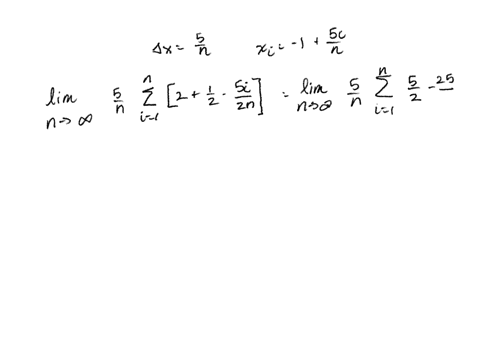 Δx = 5/n    x_i = -1 + 5i/n
lim n→∞ 5/n Σ i=1 n [2 + 1/2 - 5i/2n] = lim n→∞ 5/n Σ i=1 n 5/2 - 25/